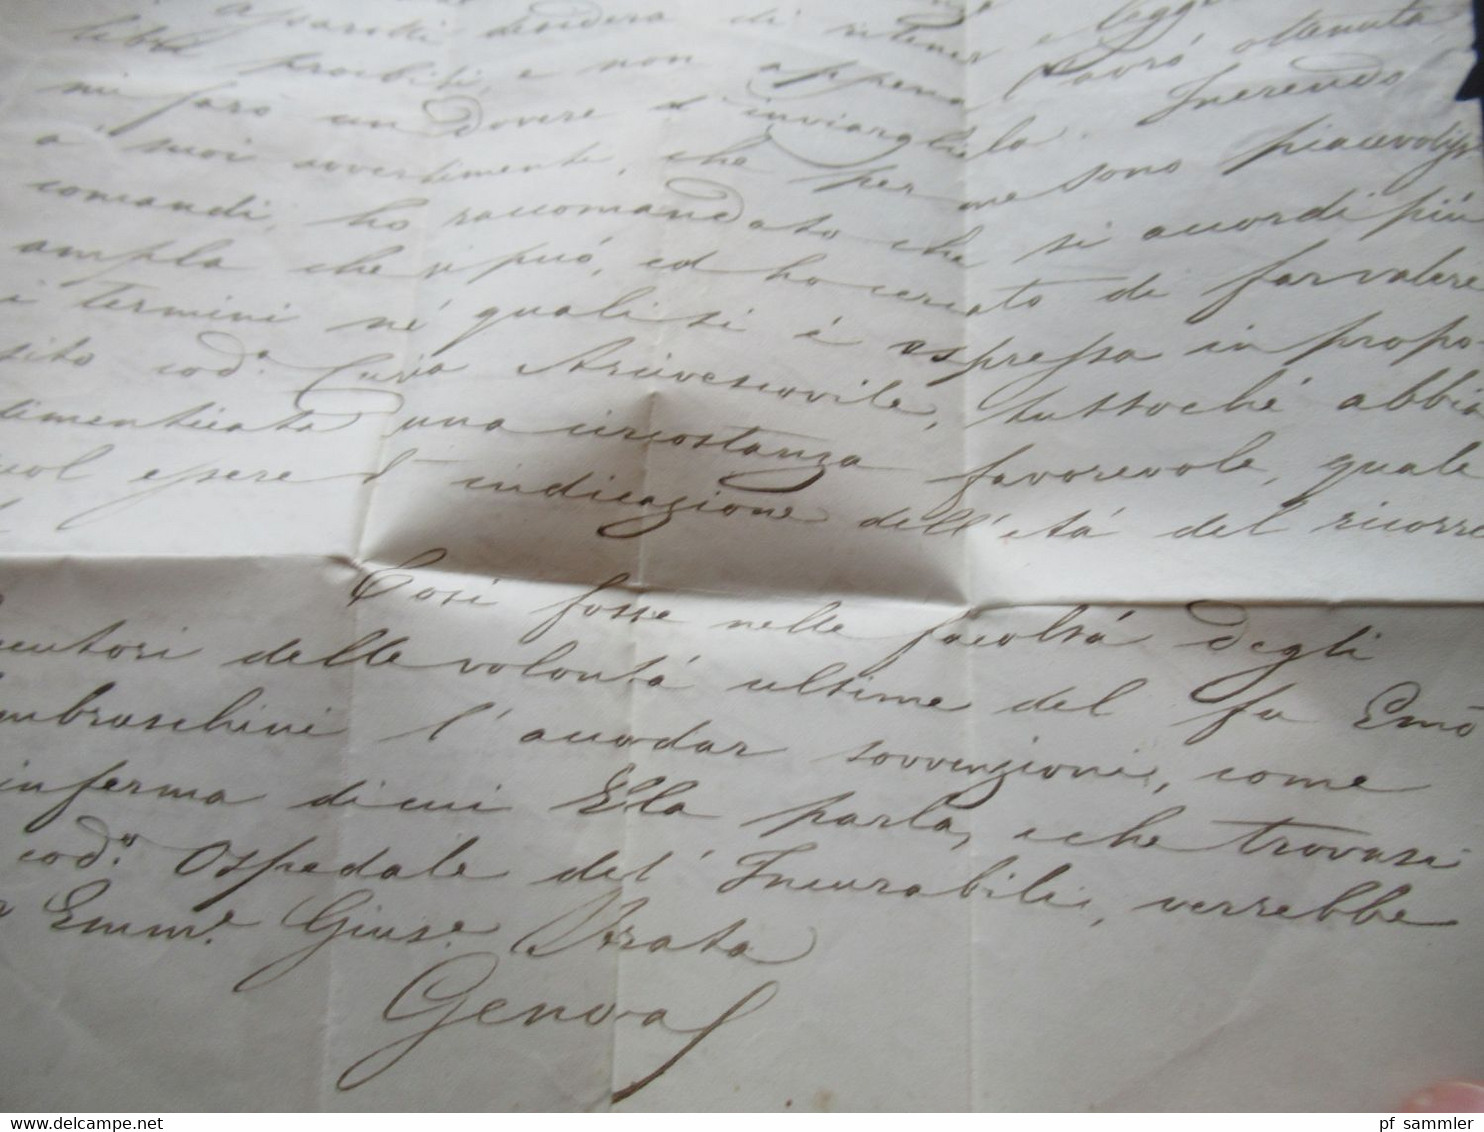 desidera di ritener e legger
libri proibiti, e non appena l'avró ottenuta
mi faró un dovere d'inviargliela. Inerendo
a' suoi avvertimenti, che per me sono piacevoliss
comandi, ho raccomandato che si accordi piú
ampla che si puó, ed ho cercato di far valere
i termini né quali si é espressa in propo-
sito cod.ª Curia Arcivescovile, tuttoché abbia
dimenticata una circostanza favorevole, quale
suol essere l'indicazione dell'etá del ricorre
Cosi fosse nelle facoltá degli
cutori delle volontá ultime del fu Emõ
mbruschini l'accordar sovvenzioni, come
inferma di cui Ella parla, e che trovasi
cod.º Ospedale del' Incurabili, verrebbe
Emm.e Gius.e Arata
Genova
pf_sammler
www.delcampe.net